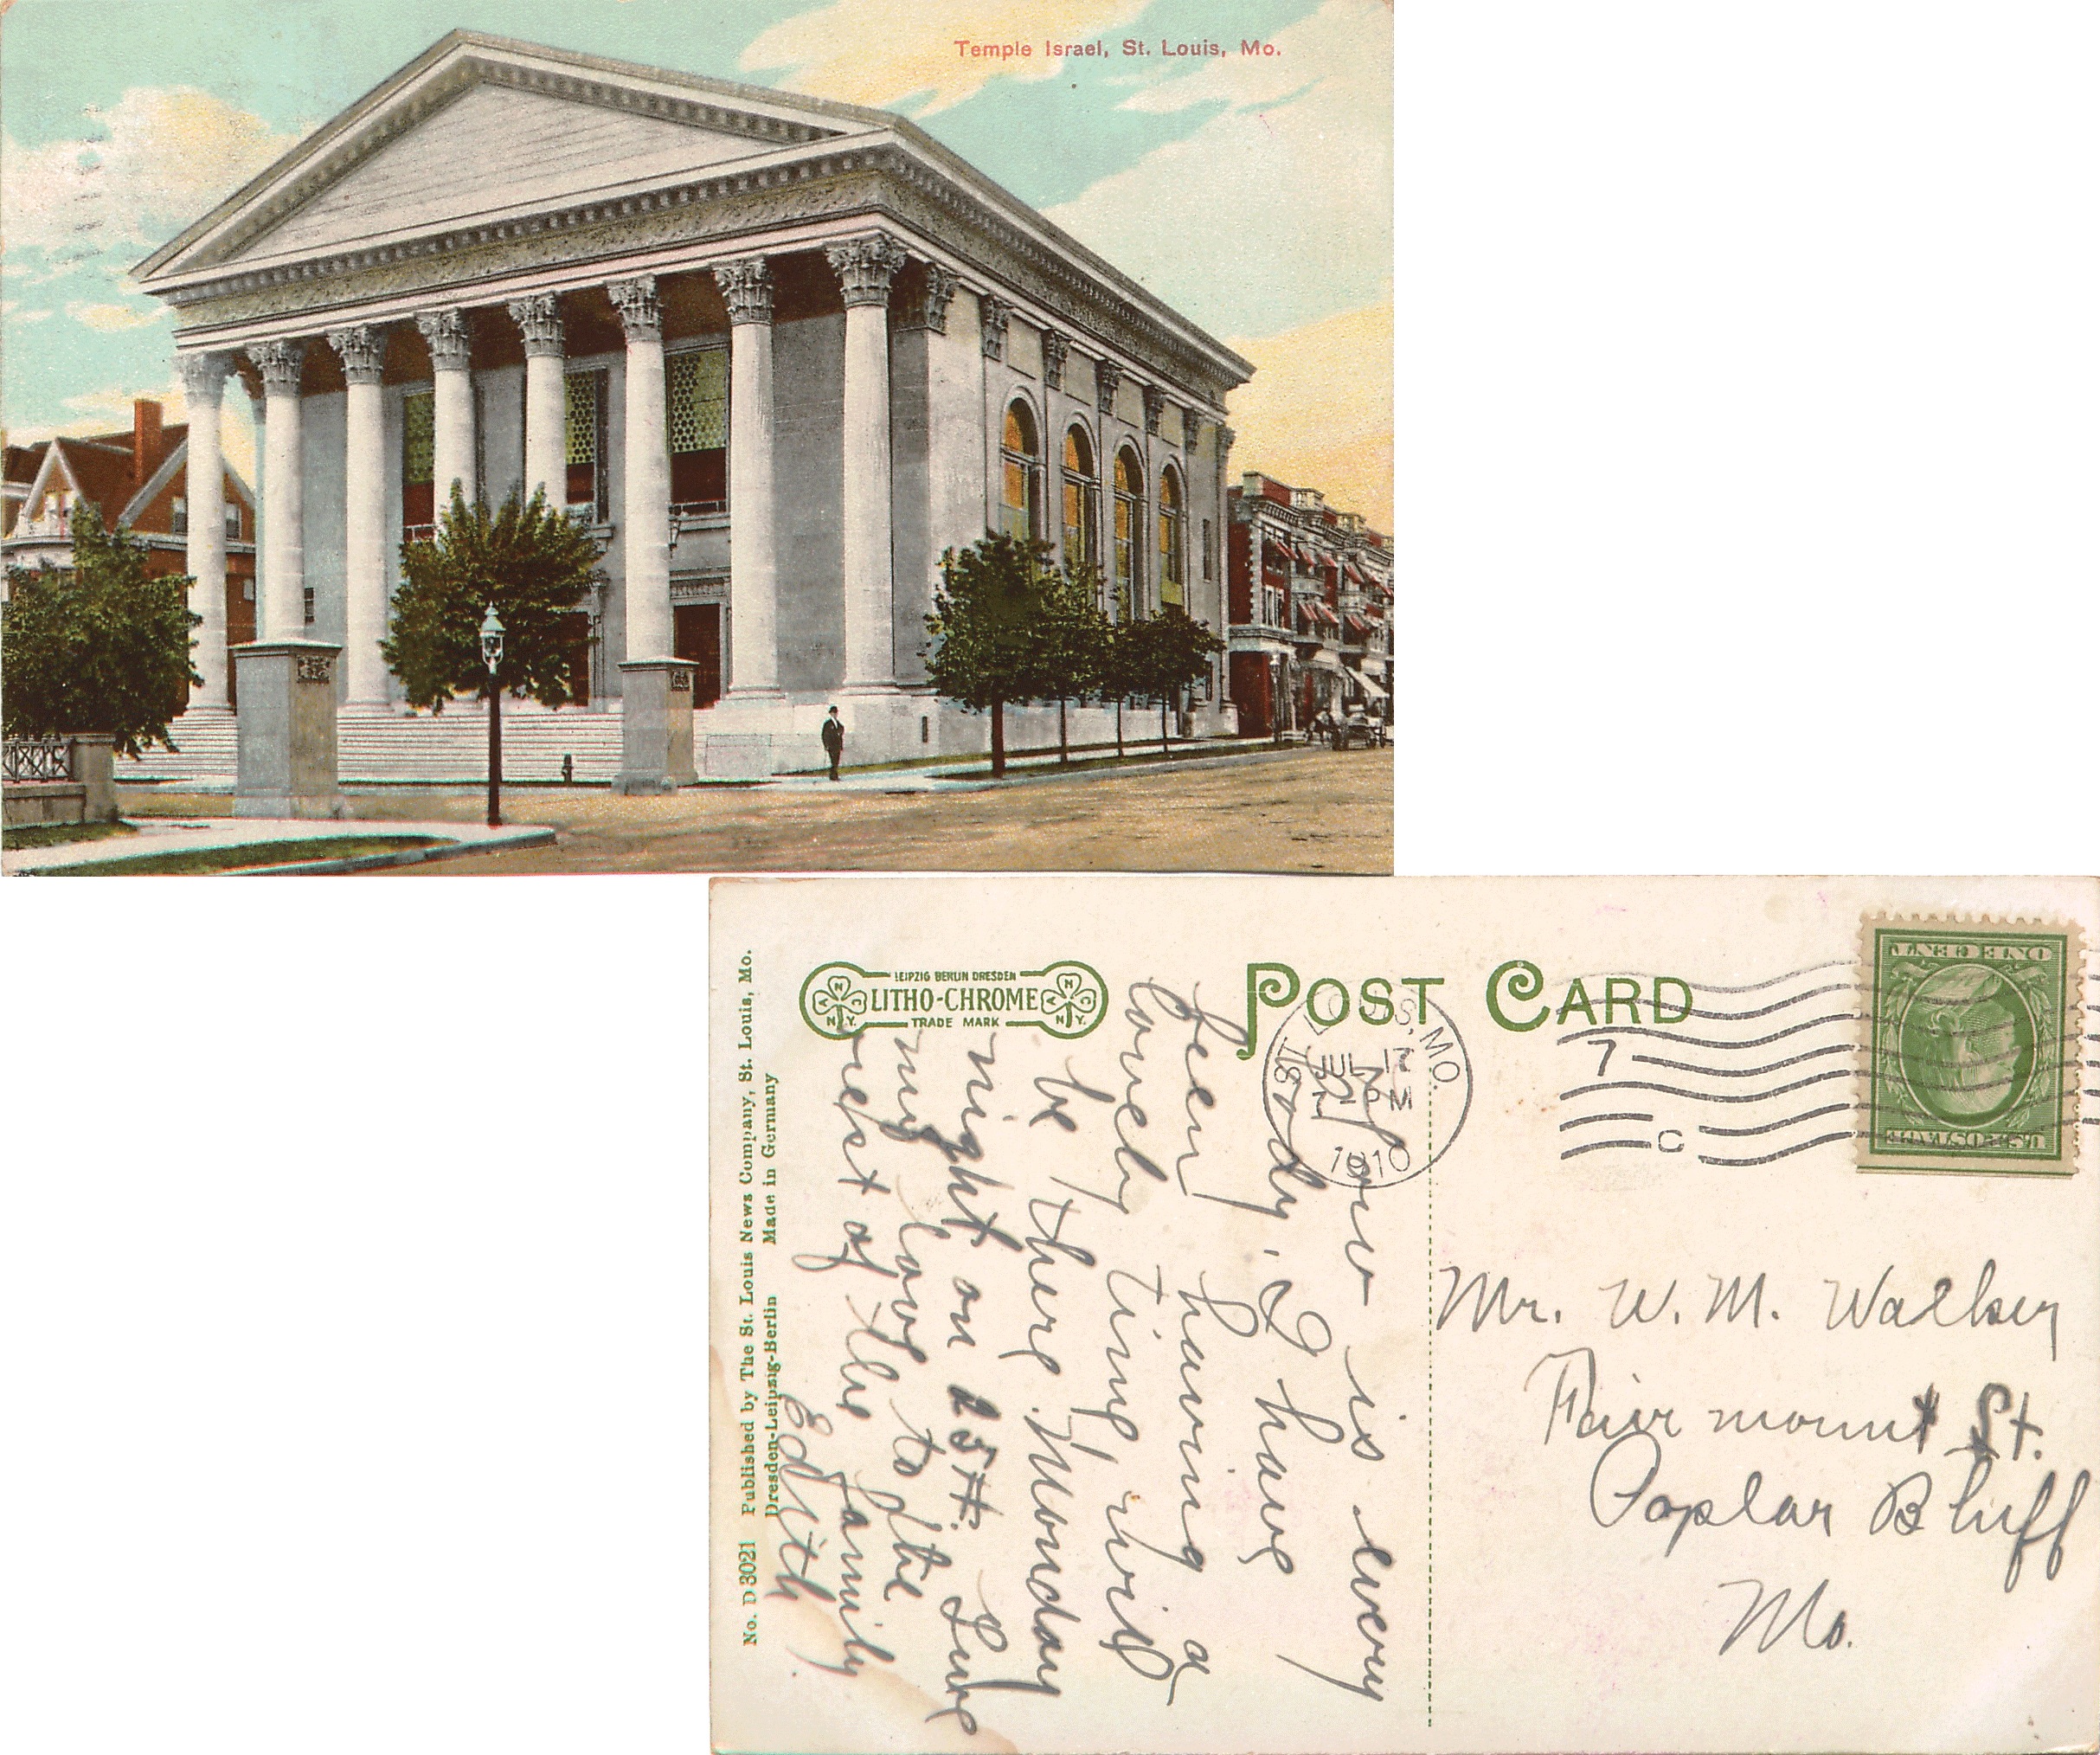 Temple Israel, St. Louis, Mo.
POST CARD
LEIPZIG BERLIN DRESDEN
LITHO-CHROME
TRADE MARK
A N C
N.Y.
A N C
N.Y.
LOUIS, MO.
JUL 17
7-PM
1910
7
C
ONE CENT
U.S. POSTAGE
No. D 3021 Published by The St. Louis News Company, St. Louis, Mo.
Dresden-Leipzig-Berlin Made in Germany
How is every
body, I have
been having a
lovely time will
be there Monday
night on 25th.
my love to the
rest of the family
Edith
Mr. W. M. Walker
Fairmount St.
Poplar Bluff
Mo.